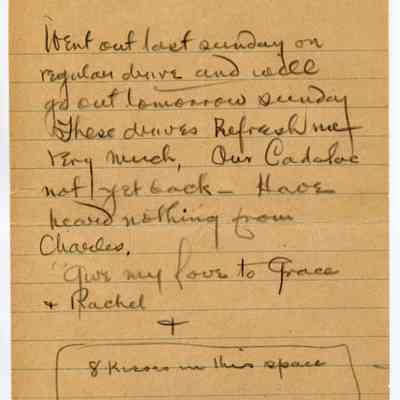 Went out last sunday on
regular drive and will
go out tomorrow sunday
These drives Refresh me
very much, Our Cadalac
not yet back - Have
heard nothing from
Charles.
Give my love to Grace
+ Rachel
+
8 Kisses in this space